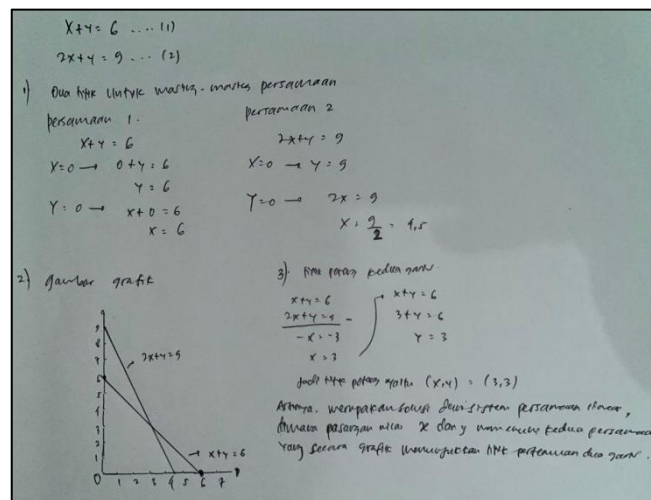 x+y = 6 .... (1)
2x+y = 9 ... (2)
1) Dua titik untuk masing-masing persamaan
persamaan 1.
x+y = 6
x=0 → 0+y = 6
y = 6
y = 0 → x+0 = 6
x = 6
persamaan 2
2x+y = 9
x=0 → y = 9
y=0 → 2x = 9
x = 9/2 = 4,5
2) gambar grafik
9
8
7
6
5
4
3
2
1
0 1 2 3 4 5 6 7
2x+y=9
x+y=6
3) titik potong kedua garis
x+y = 6
2x+y = 9 -
-x = -3
x = 3
x+y = 6
3+y = 6
y = 3
Jadi titik potong yaitu (x,y) = (3,3)
Artinya. merupakan solusi dari sistem persamaan linear,
dimana pasangan nilai x dan y memenuhi kedua persamaan
yang secara grafik menunjukkan titik pertemuan dua garis.